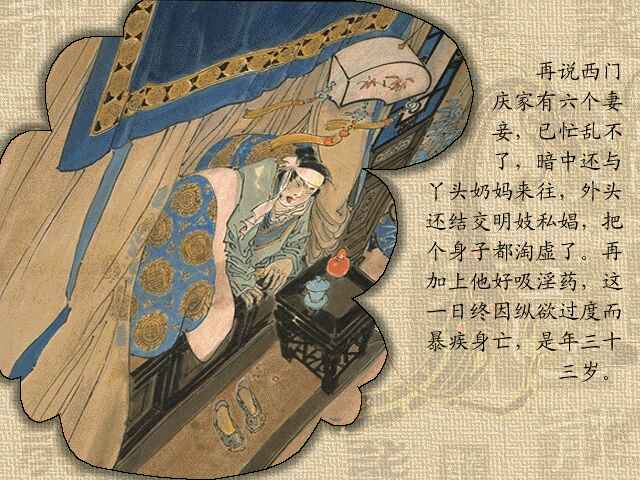 再说西门
庆家有六个妻
妾，已忙乱不
了，暗中还与
丫头奶妈来往，外头
还结交明妓私娼，把
个身子都淘虚了。再
加上他好吸淫药，这
一日终因纵欲过度而
暴疾身亡，是年三十
三岁。